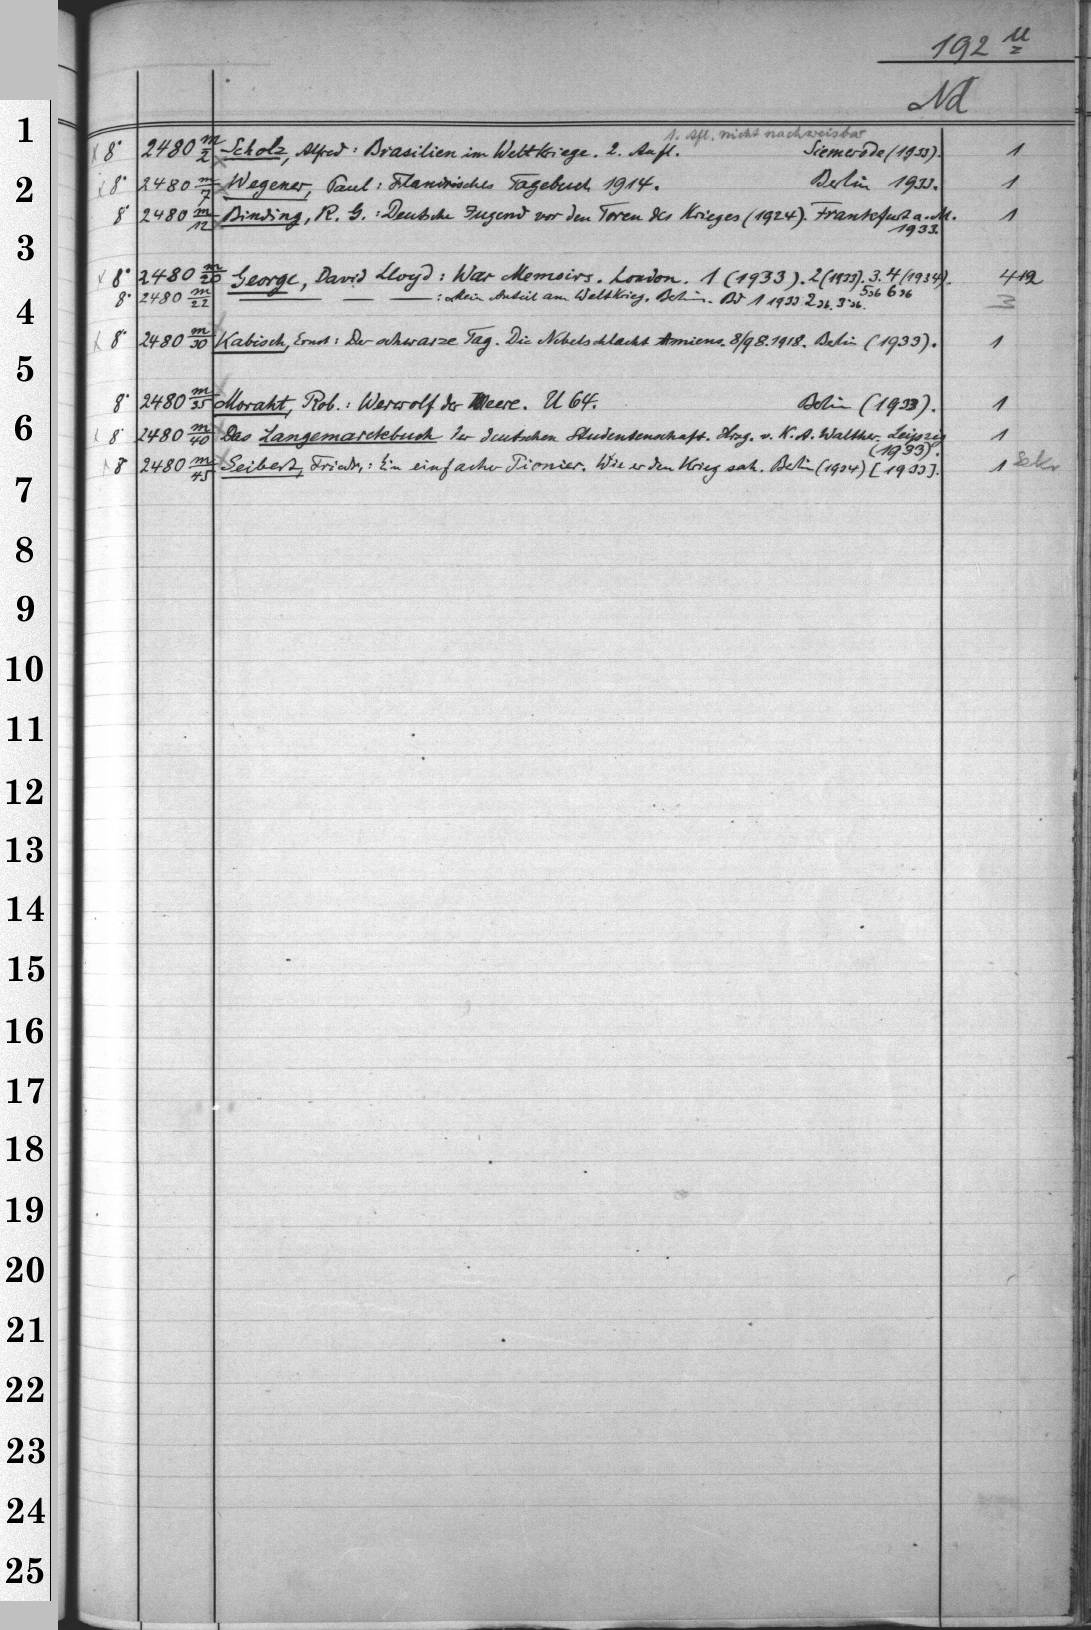 192 u/z
Nd
1
1. Afl. nicht nachweisbar
x 8° 2480 m/2 Scholz, Alfred: Brasilien im Weltkriege. 2. Aufl. Siemerode (1933). 1
2
x 8° 2480 m/7 Wegener, Paul: Flandrisches Tagebuch 1914. Berlin 1933. 1
8° 2480 m/12 Binding, R. G.: Deutsche Jugend vor den Toren des Krieges (1924). Frankfurt a. M. 1
1933.
3
x 8° 2480 m/20 George, David Lloyd: War Memoirs. London. 1 (1933). 2 (1933). 3. 4 (1934).
5 36 6 36
4
8° 2480 m/22 — — —: Mein Anteil am Weltkrieg. Berlin. Bd 1 1933 2 34. 3 36. 3
x 8° 2480 m/30 Kabisch, Ernst: Der schwarze Tag. Die Nebelschlacht Amiens. 8/9 8. 1918. Berlin (1933). 1
5
8° 2480 m/35 Moraht, Rob.: Werwolf der Meere. U 64. Berlin (1933). 1
6
8° 2480 m/40 Das Langemarckbuch der deutschen Studentenschaft. Hrsg. v. K. A. Walther. Leipzig 1
(1933).
x 8° 2480 m/45 Seibert, Friedr.: Ein einfacher Pionier. Wie er den Krieg sah. Berlin (1934) [1933]. 1 Sekr
7
8
9
10
11
12
13
14
15
16
17
18
19
20
21
22
23
24
25